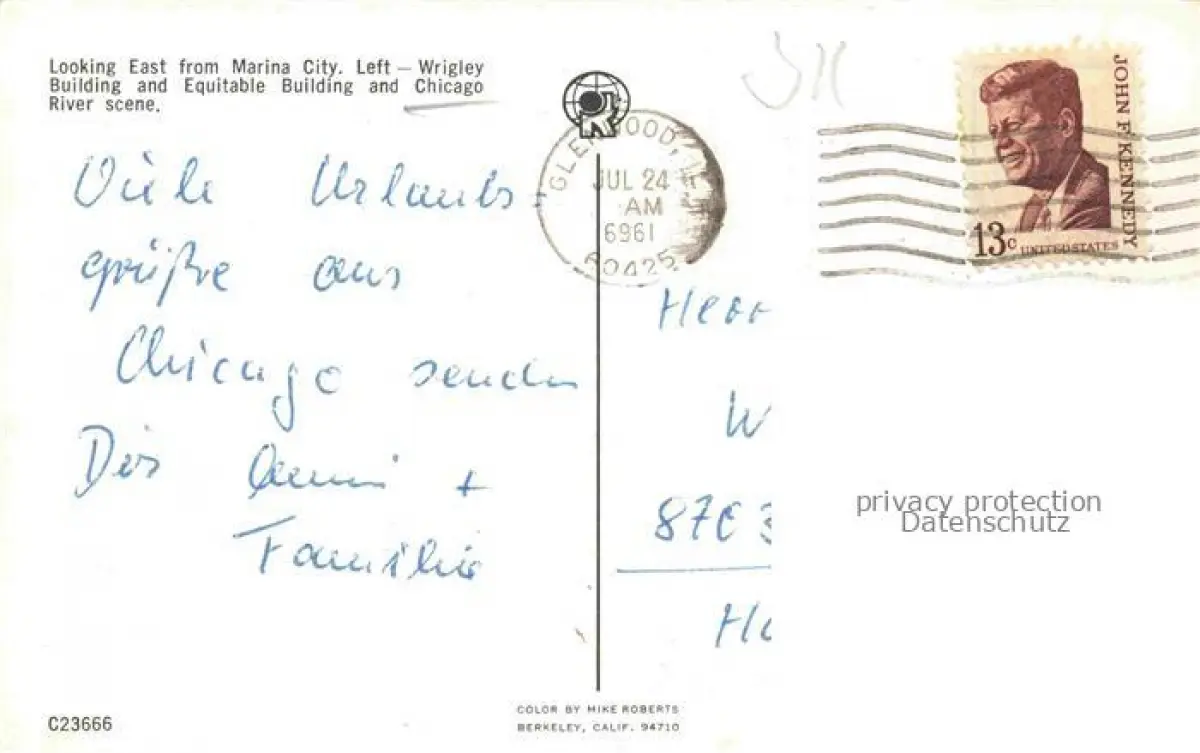 Looking East from Marina City. Left — Wrigley
Building and Equitable Building and Chicago
River scene.
GLENWOOD, ILL
JUL 24
AM
1969
60425
JOHN F. KENNEDY
13c UNITED STATES
Viele Urlaubs-
grüße aus
Chicago senden
Dir +
Familie
Herr
W
87
H
privacy protection
Datenschutz
C23666
COLOR BY MIKE ROBERTS
BERKELEY, CALIF. 94710